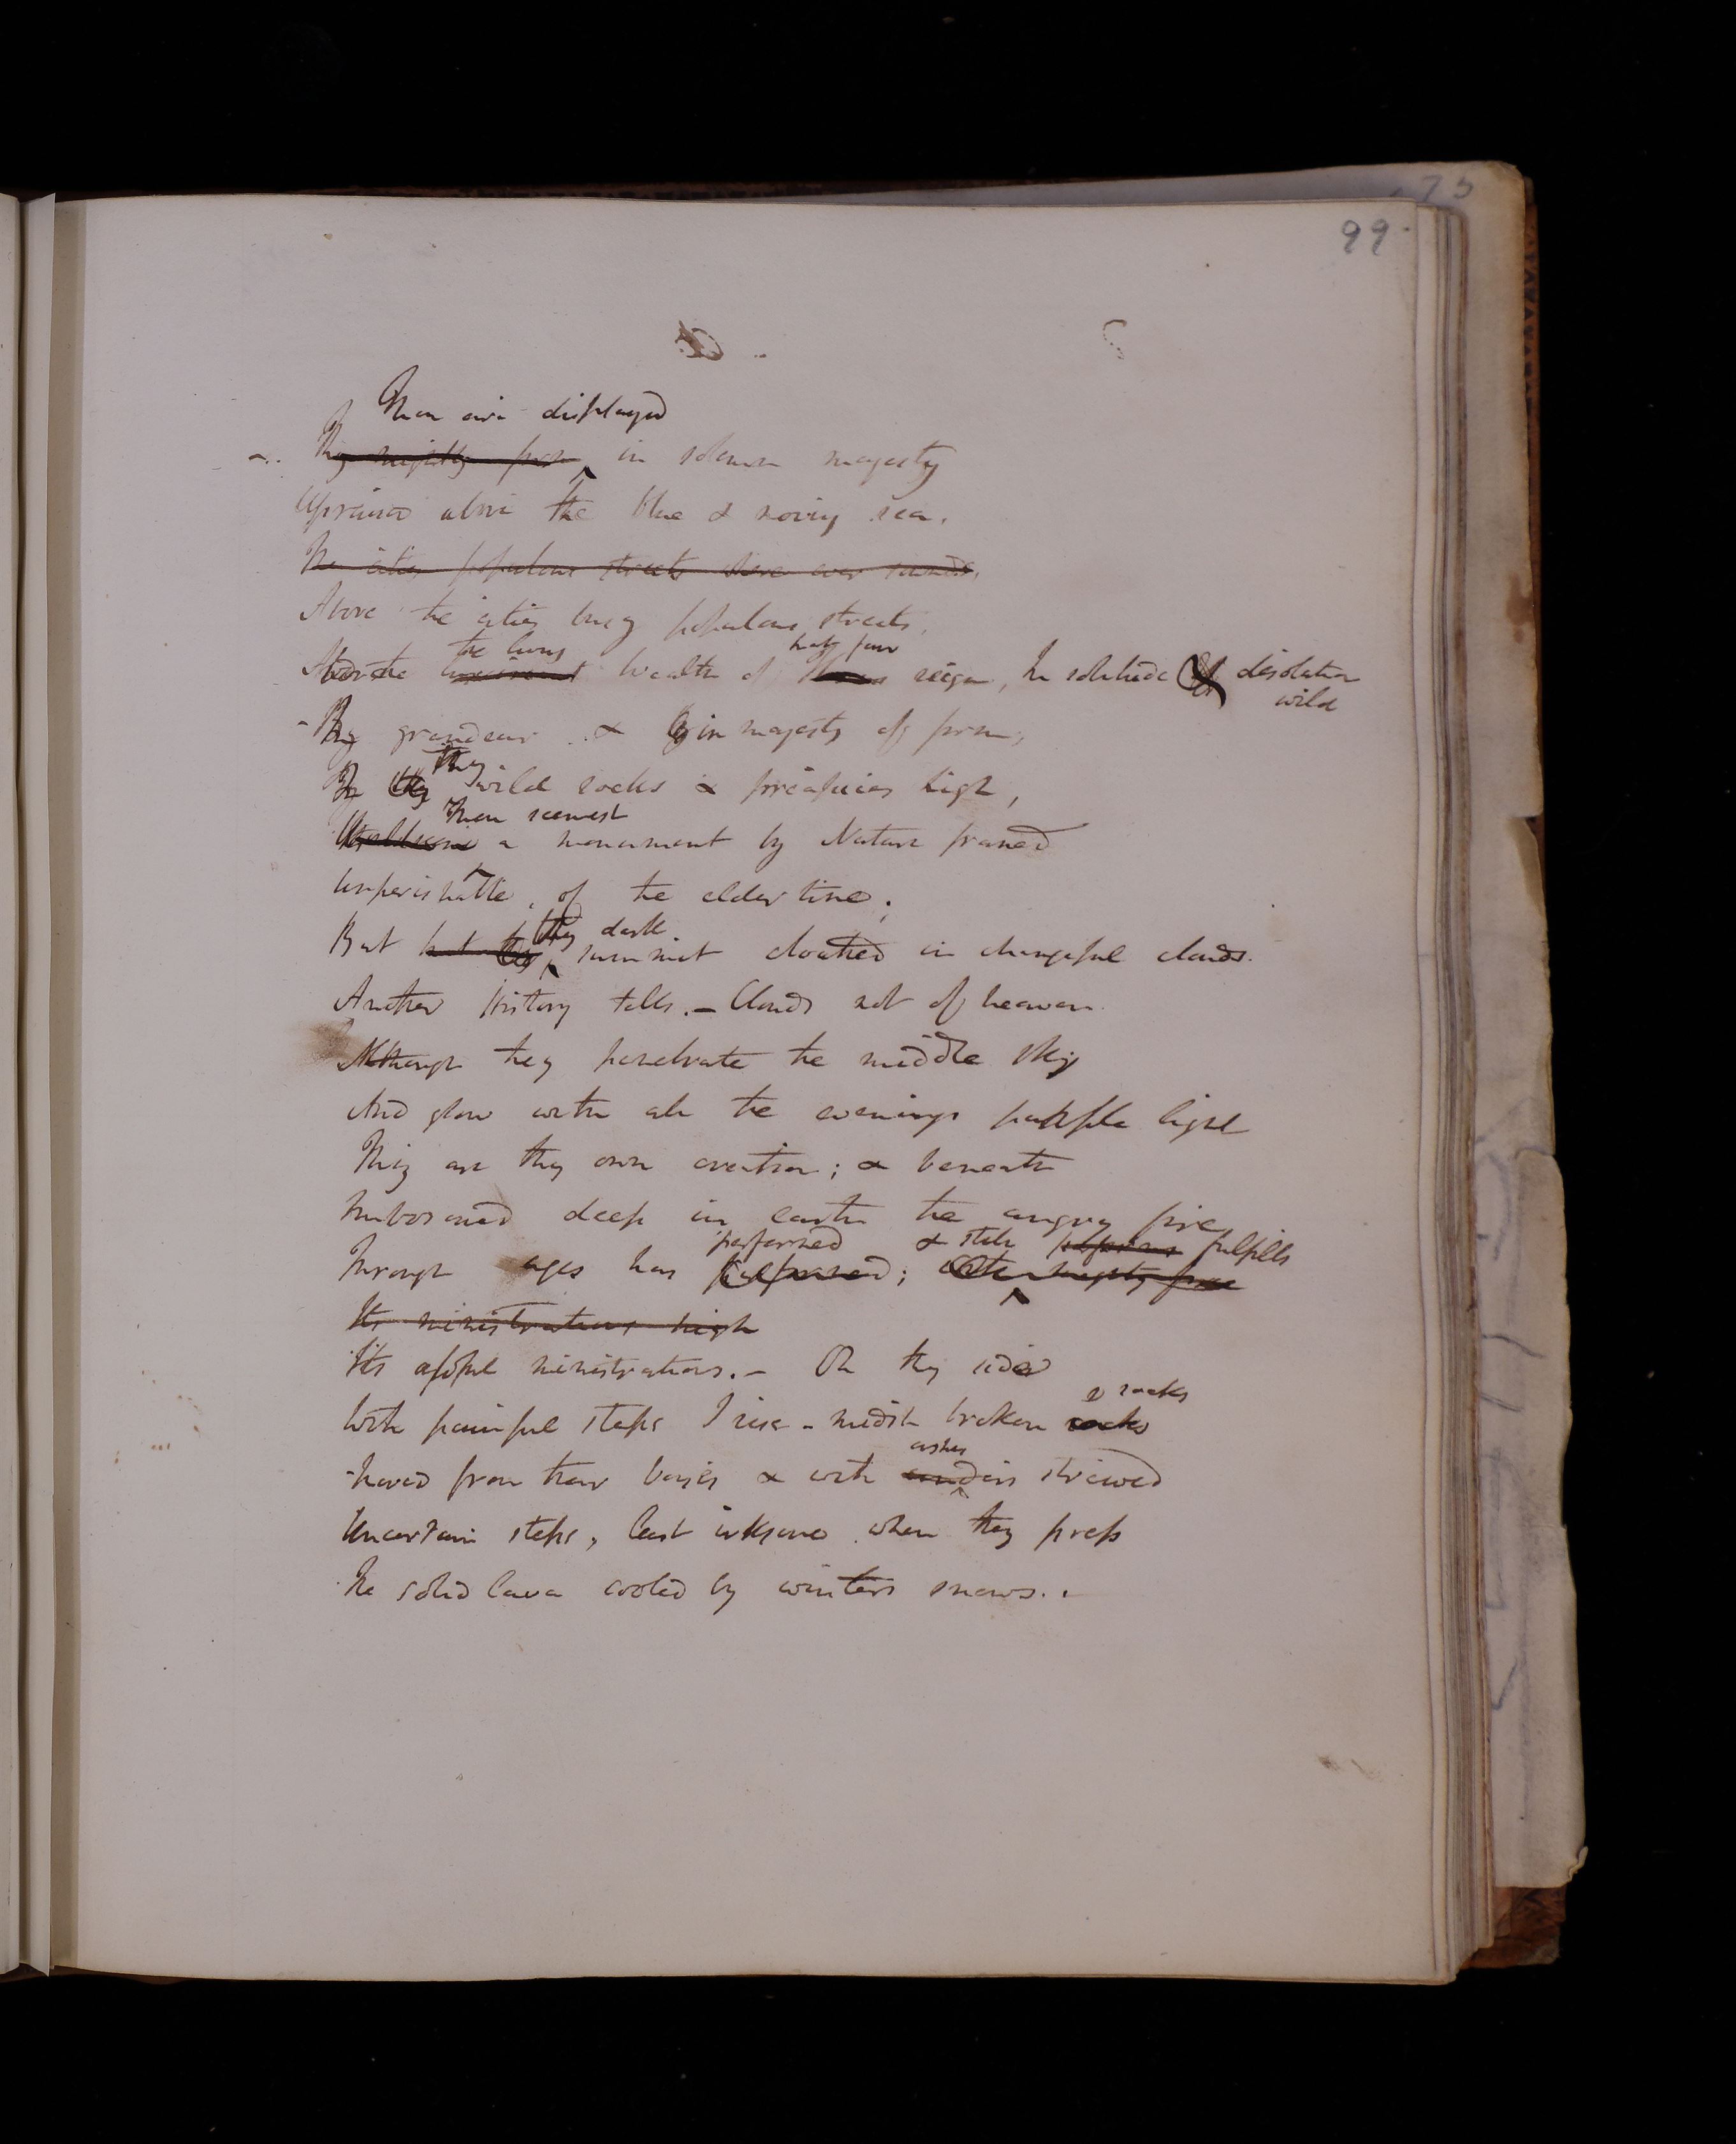 99
75
Thou art displayed
Thy mighty form in solemn majesty
Upraised above the blue & moving sea.
The cities populous streets where ever sounds,
Above the cities busy populous streets,
the living half four
Above the breath of reign, In solitude & desolation
wild
Thy grandeur & majesty of form,
thy
In thy wild rocks & precipices high,
Thou seemest
a monument by Nature framed
Unperishable, of the elder time;
thy dark
But but thy summit cloathed in changeful clouds.
Another History tells. – Clouds not of heaven
Although they penetrate the middle sky
And glow with all the evenings purple light
They are thy own creation; & beneath
Imbosomed deep in earth the angry fire
performed & still fulfills
Through ages has ; mighty
Its ministrations high
Its awful ministrations. – On thy side
& rocks
With painful steps I rise – midst broken rocks
ashes
Moved from their basis & with cinders strewed
Uncertain steps, least irksome when they press
The solid lava cooled by winters snows. .